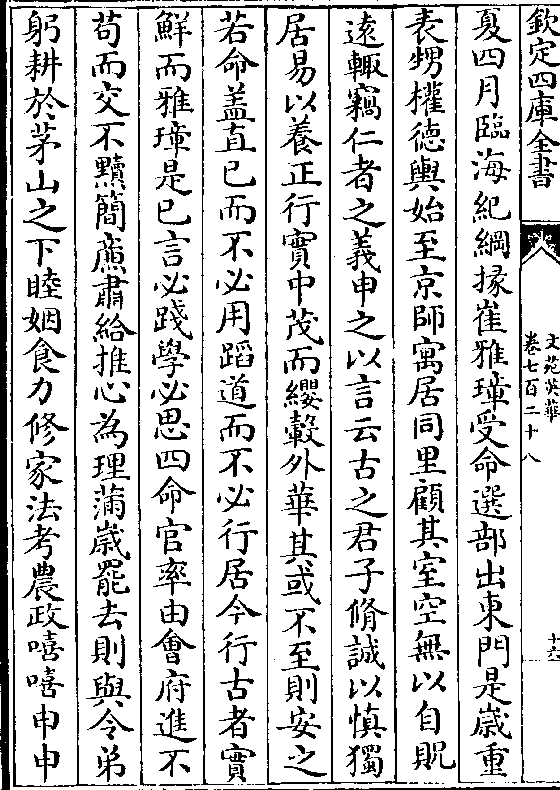 欽定四庫全書
文苑英華
卷七百二十八
夏四月臨海紀綱掾崔雅璋受命選部出東門是歲重
表甥權德輿始至京師寓居同里顧其室空無以自貺
遠輙竊仁者之義申之以言云古之君子脩誠以慎獨
居易以養正行實中茂而纓轂外華其或不至則安之
若命蓋直已而不必用蹈道而不必行居今行古者實
鮮而雅璋是已言必踐學必思四命官率由會府進不
苟而交不黷簡廉肅給推心為理蒲嵗罷去則與令弟
躬耕於茅山之下睦姻食力修家法考農政嘻嘻申申